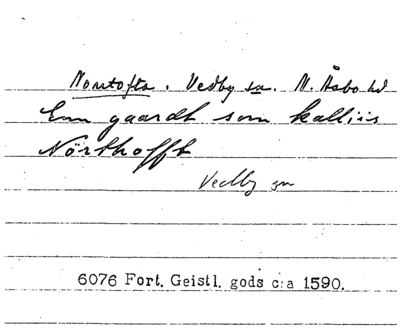 Norrtofta. Vedby sn. N. Åsbo hd
Enn gaardt som kalliis
Nörthofft
Vedby sn
6076 Fort. Geistl. gods c:a 1590.